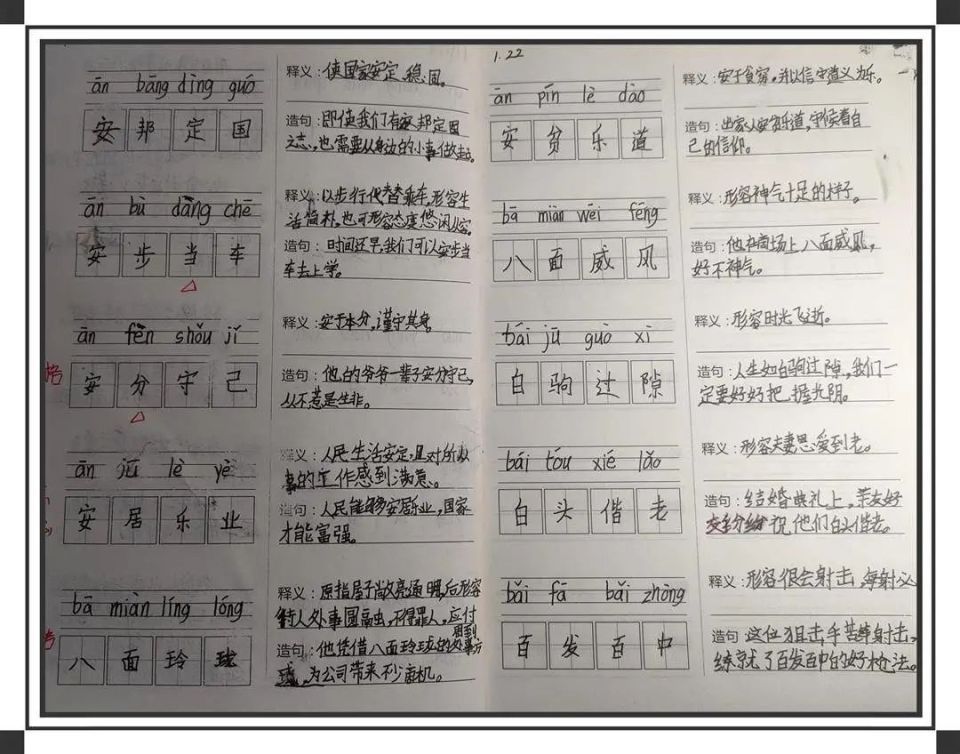 ān bāng dìng guó
安邦定国
释义：使国家安定，稳固。
造句：即使我们有安邦定国
之志，也需要从身边的小事做起。
ān bù dāng chē
安步当车
释义：以步行代替乘车，形容生
活简朴，也可形容态度悠闲从容。
造句：时间还早，我们可以安步当
车去上学。
ān fèn shǒu jǐ
安分守己
释义：安于本分，谨守其身。
造句：他的爷爷一辈子安分守己，
从不惹是生非。
ān jū lè yè
安居乐业
释义：人民生活安定，且对所从
事的工作感到满意。
造句：人民能够安居乐业，国家
才能富强。
bā miàn líng lóng
八面玲珑
释义：原指屋子敞亮通明，后形容
待人处事圆融，不得罪人，应付
周到
造句：他凭借八面玲珑的处事方
为公司带来不少商机。
1.22
ān pín lè dào
安贫乐道
释义：安于贫穷，并以信守道义为乐。
造句：出家人安贫乐道，守候着自
己的信仰。
bā miàn wēi fēng
八面威风
释义：形容神气十足的样子。
造句：他在商场上八面威风，
好不神气。
bái jū guò xì
白驹过隙
释义：形容时光飞逝。
造句：人生如白驹过隙，我们一
定要好好把握光阴。
bái tóu xié lǎo
白头偕老
释义：形容夫妻恩爱到老。
造句：结婚典礼上，亲友好
友纷纷祝他们白头偕老。
bǎi fā bǎi zhòng
百发百中
释义：形容很会射击，每射必
造句：这位狙击手苦练射击，
练就了百发百中的好枪法。